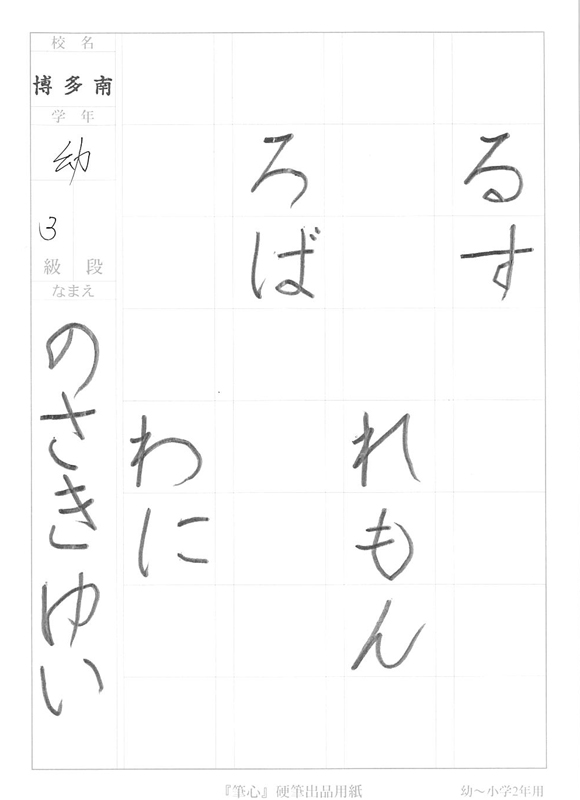 るす
れもん
ろば
わに
校名
博多南
学年
幼
3
級 段
なまえ
のさきゆい
『筆心』硬筆出品用紙
幼〜小学2年用